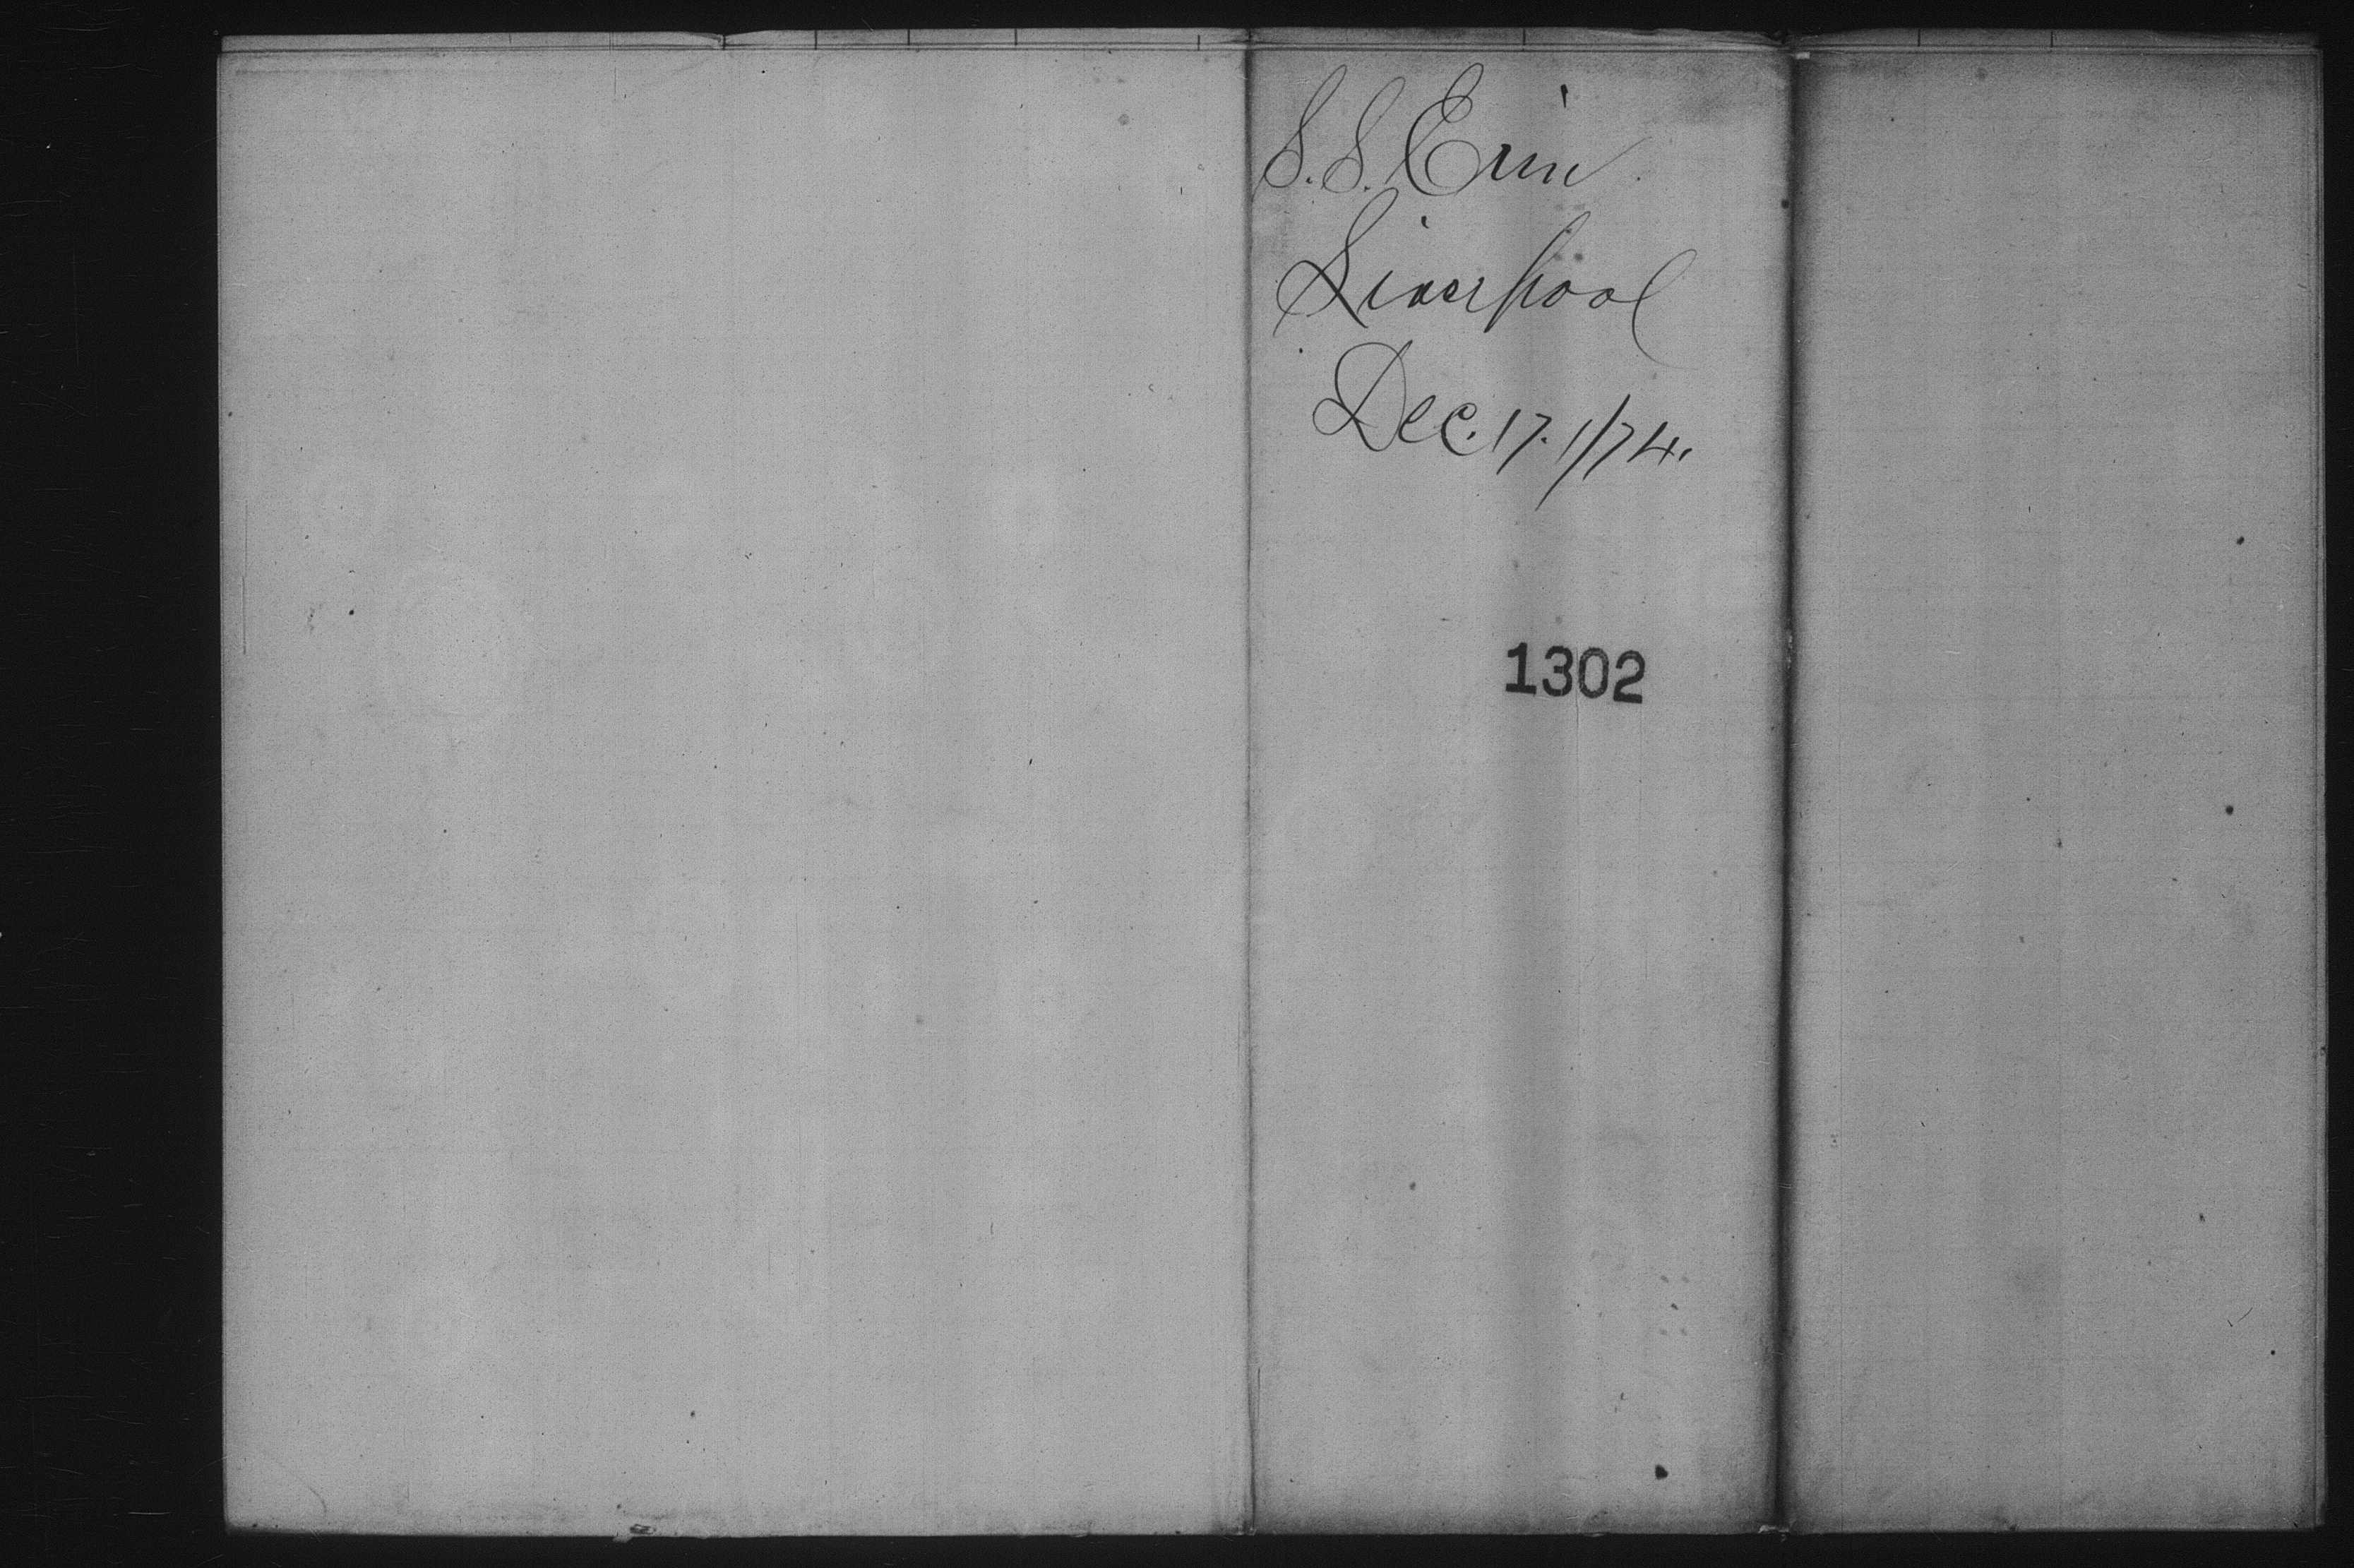 S.S. Erin
Liverpool
Dec. 17. 1/74.
1302